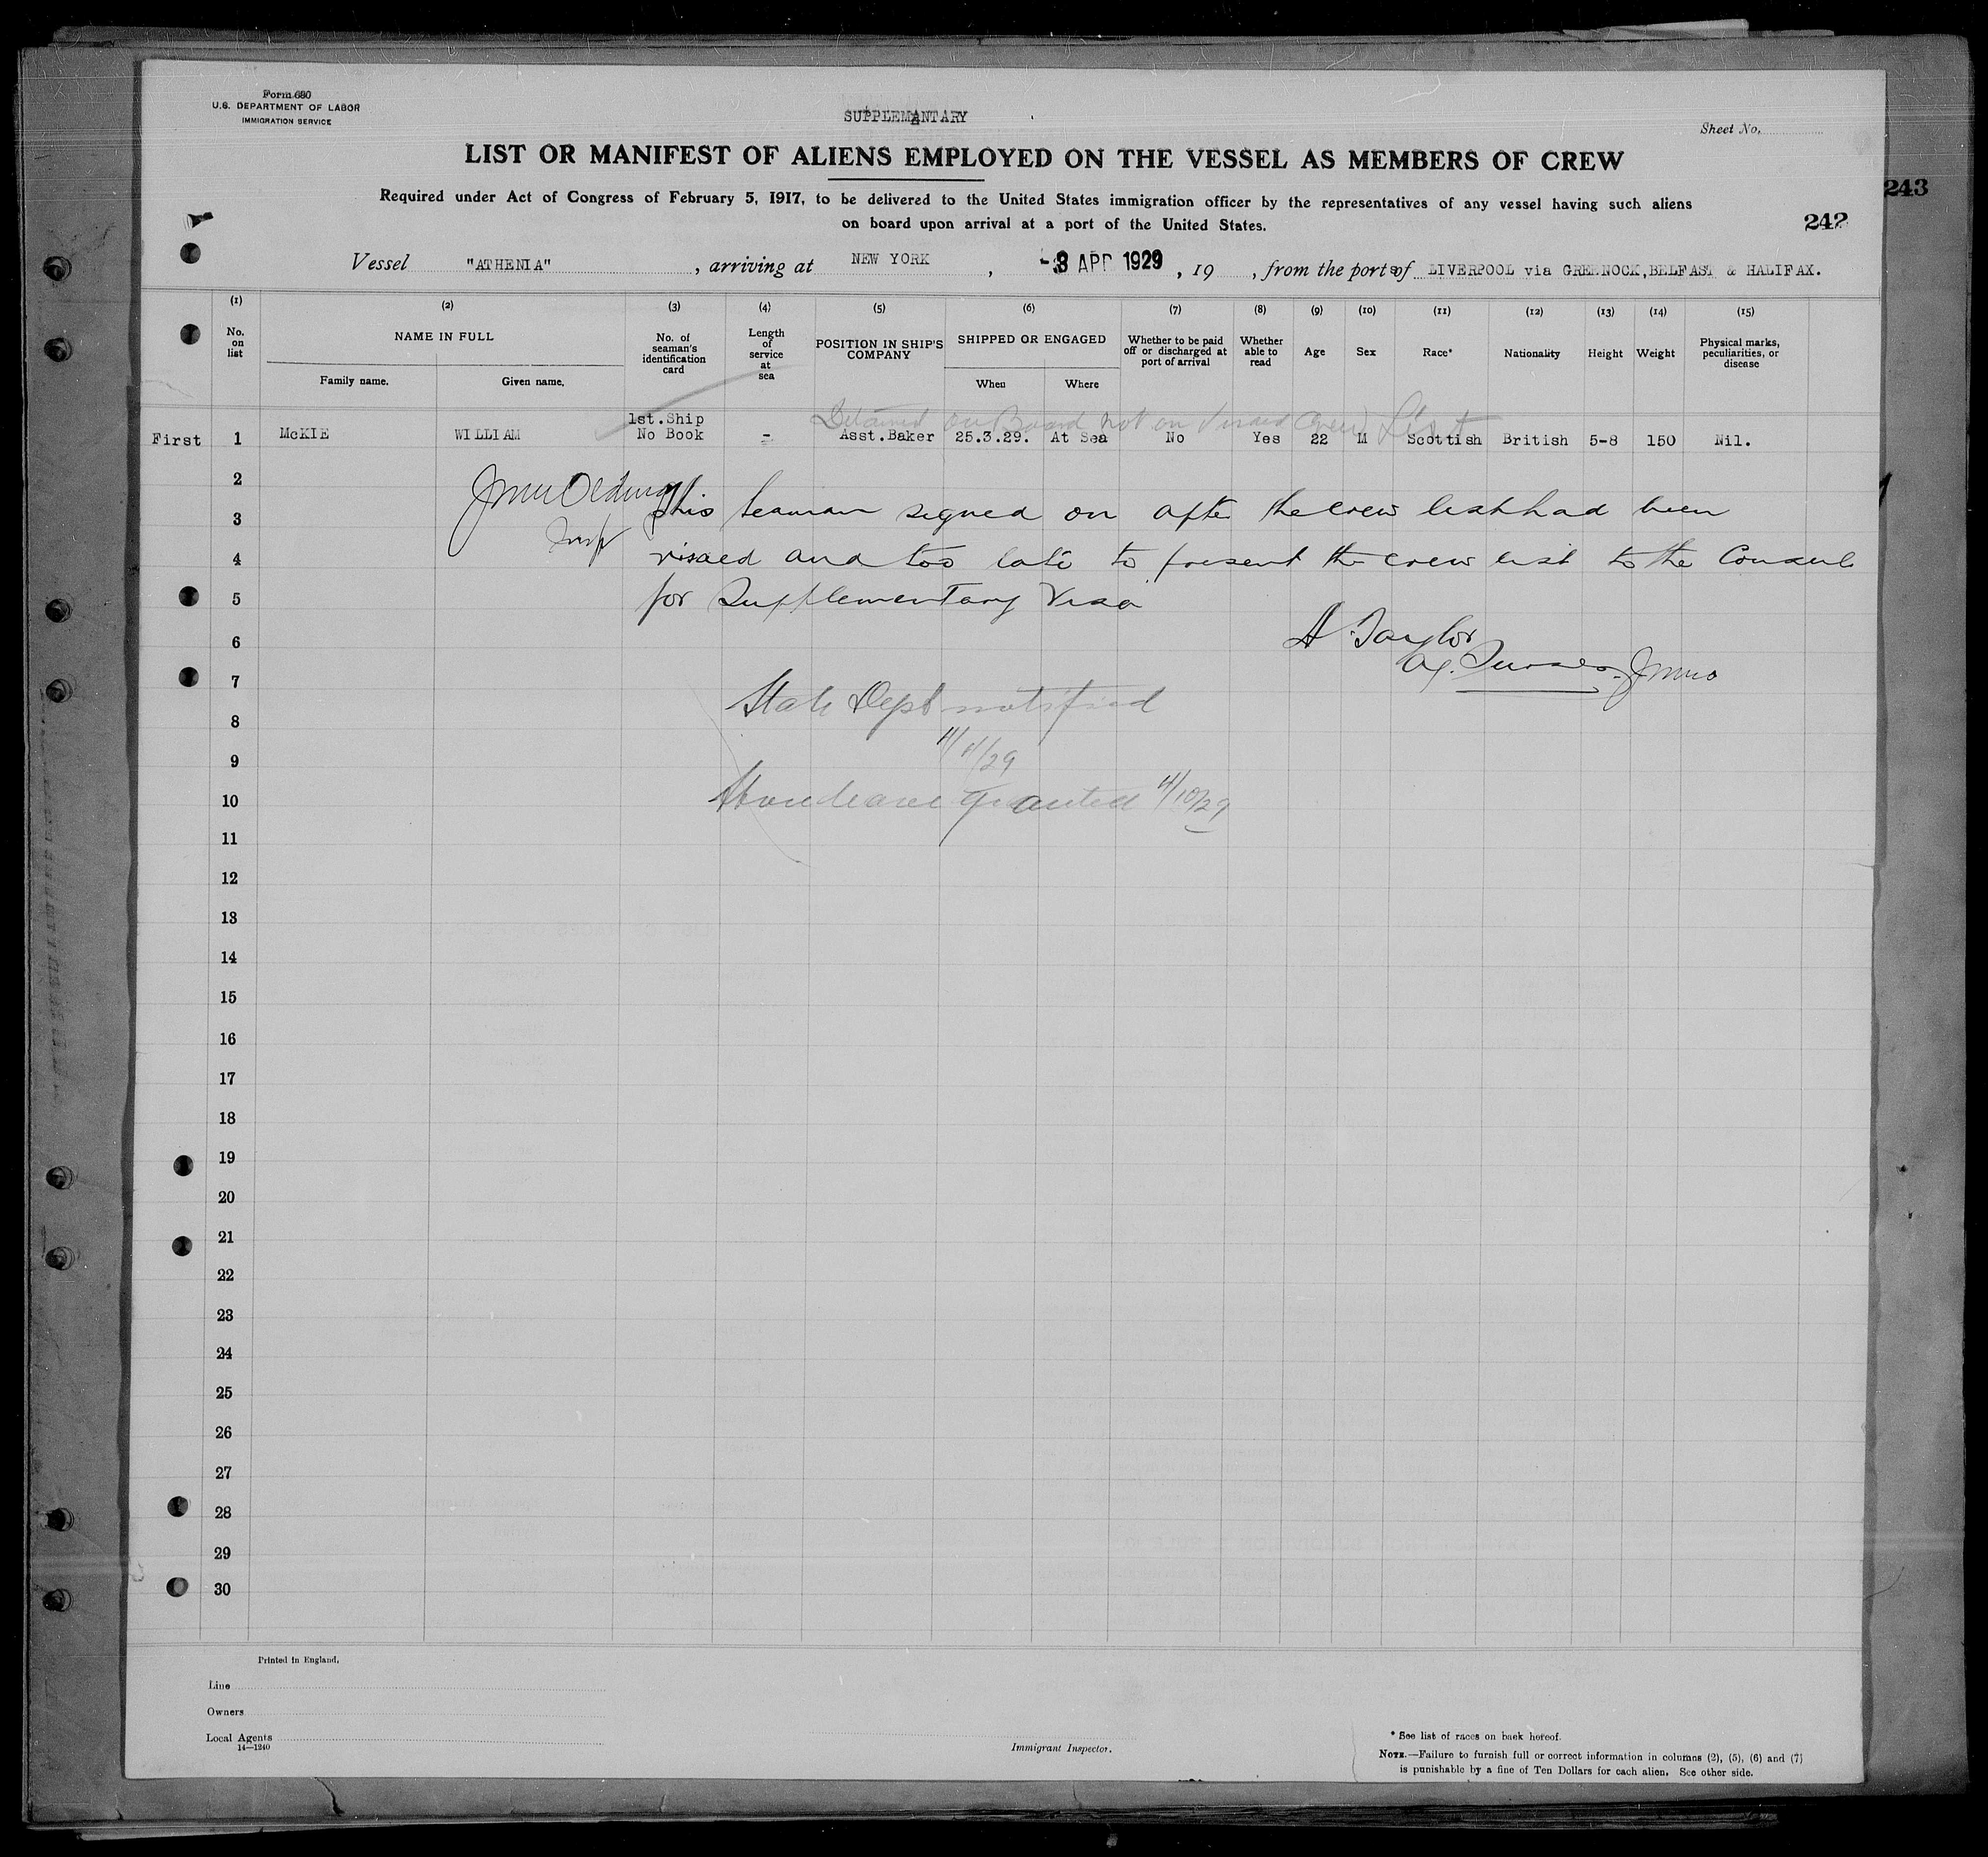 Form 680
U.S. DEPARTMENT OF LABOR
IMMIGRATION SERVICE
SUPPLEMANTARY
Sheet No.
LIST OR MANIFEST OF ALIENS EMPLOYED ON THE VESSEL AS MEMBERS OF CREW
243
Required under Act of Congress of February 5, 1917, to be delivered to the United States immigration officer by the representatives of any vessel having such aliens
on board upon arrival at a port of the United States.
242
Vessel "ATHENIA", arriving at NEW YORK, -8 APR 1929, 19 , from the ports of LIVERPOOL via GREENOCK, BELFAST & HALIFAX.
(1) (2) (3) (4) (5) (6) (7) (8) (9) (10) (11) (12) (13) (14) (15)
No. on list
NAME IN FULL
Family name. Given name.
No. of seaman's identification card
Length of service at sea
POSITION IN SHIP'S COMPANY
SHIPPED OR ENGAGED
When Where
Whether to be paid off or discharged at port of arrival
Whether able to read
Age
Sex
Race*
Nationality
Height
Weight
Physical marks, peculiarities, or disease
Detained on Board not on Visaed Crew List
1st.Ship
First 1 McKIE WILLIAM No Book - Asst.Baker 25.3.29. At Sea No Yes 22 M Scottish British 5-8 150 Nil.
2
3 This seaman signed on after the crew list had been
Insp
4 visaed and too late to present the crew list to the Consul
5 for Supplementary Visa
6 A. Taylor
7
State Dept notified
8
4/11/29
9
10 Shore leave granted 4/10/29
11
12
13
14
15
16
17
18
19
20
21
22
23
24
25
26
27
28
29
30
Printed in England.
Line
Owners
Local Agents
14—1240
Immigrant Inspector.
* See list of races on back hereof.
NOTE.—Failure to furnish full or correct information in columns (2), (5), (6) and (7)
is punishable by a fine of Ten Dollars for each alien. See other side.